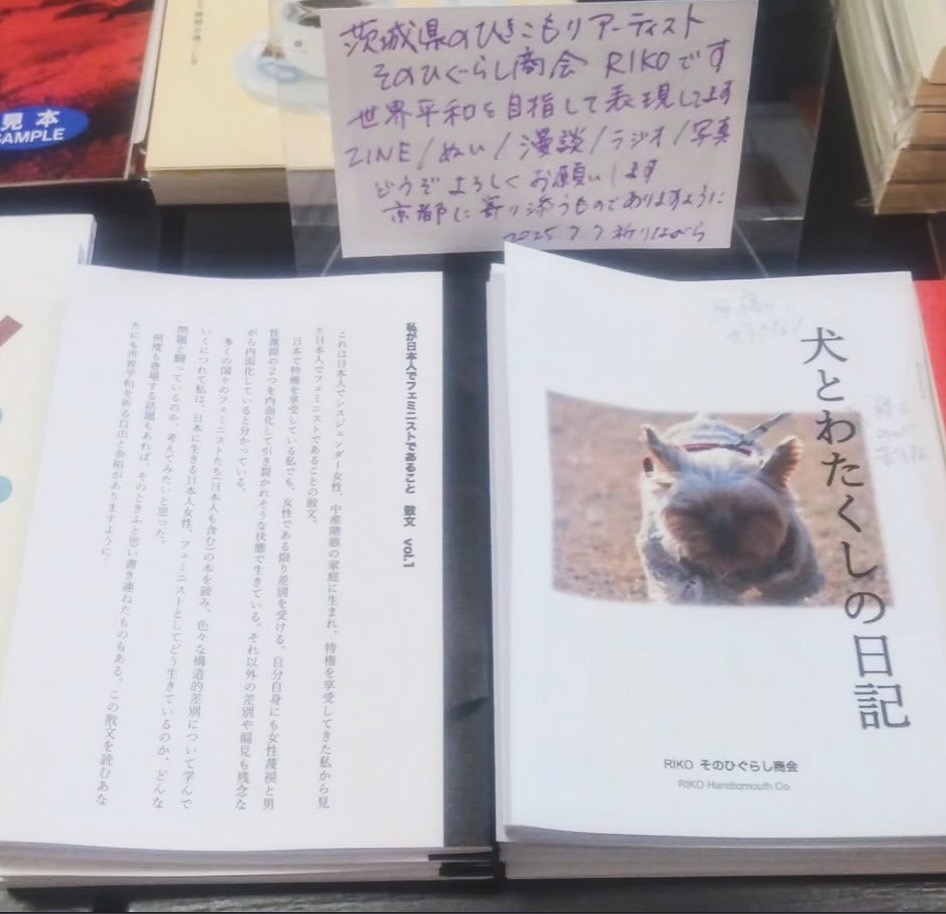 見本
SAMPLE
茨城県のひきこもりアーティスト
そのひぐらし商会 RIKOです
世界平和を目指して表現してます
ZINE/ぬい/漫談/ラジオ/写真
どうぞよろしくお願いします
京都に寄り添うものでありますように
2025 7 7 祈りながら
私が日本人でフェミニストであること 散文 vol.1
これは日本人でシスジェンダー女性、中産階級の家庭に生まれ、特権を享受してきた私から見
た日本人でフェミニストであることの散文。
日本で特権を享受している私でも、女性である限り差別を受ける。自分自身にも女性蔑視と男
性蔑視の2つを内面化して引き裂かれそうな状態で生きている。それ以外の差別や偏見も残念な
がら内面化していると分かっている。
多くの国々のフェミニストたち(日本人も含む)の本を読み、色々な構造的差別について学んで
いくにつれて私は、日本に生きる日本人女性、フェミニストとしてどう生きているのか、どんな
問題と闘っているのか、考えてみたいと思った。
何度も登場する話題もあれば、そのときふと思い書き連ねたものもある。この散文を読むあな
たにも世界平和を祈る自由と余裕がありますように!
犬とわたくしの日記
RIKO そのひぐらし商会
RIKO Handtomouth Co.